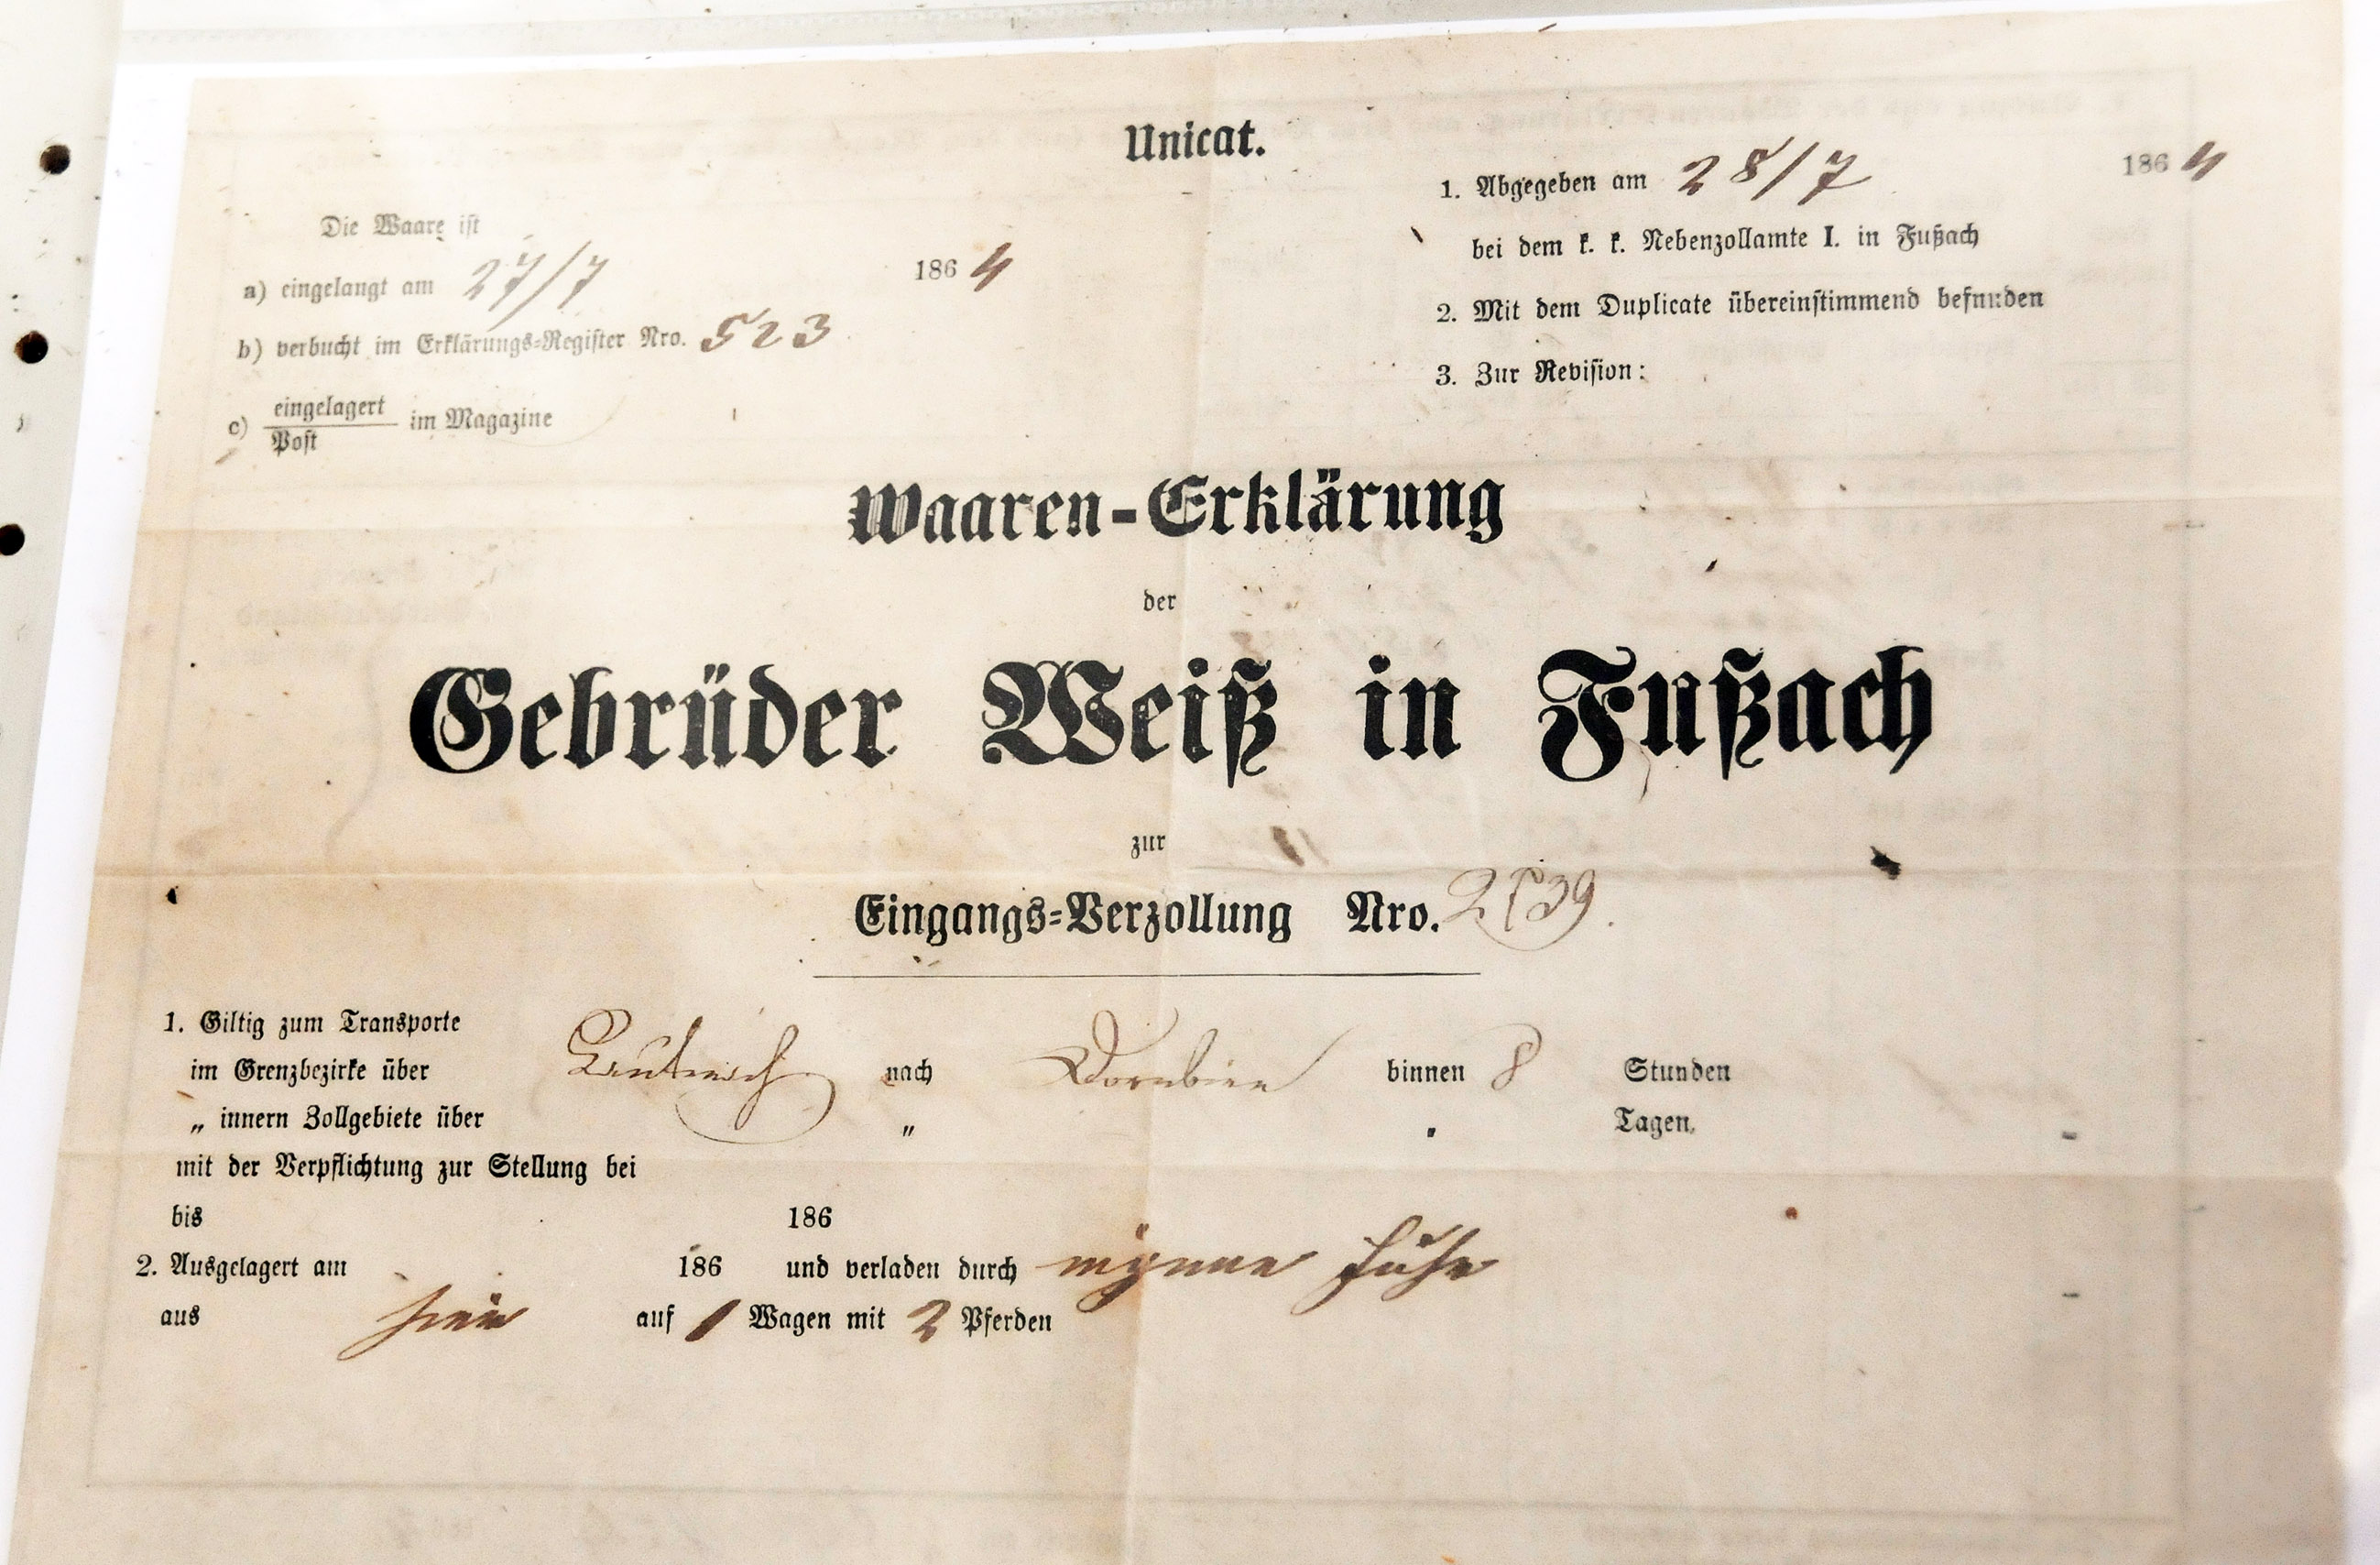 Unicat.
Die Waare ist
a) eingelangt am 27/7 1864
b) verbucht im Erklärungs-Register Nro. 523
c) eingelagert
Post
im Magazine
1. Abgegeben am 28/7 1864
bei dem k. k. Nebenzollamte I. in Fußach
2. Mit dem Duplicate übereinstimmend befunden
3. Zur Revision:
Waaren-Erklärung
der
Gebrüder Weiß in Fußach
zur
Eingangs-Verzollung Nro.
1. Giltig zum Transporte
im Grenzbezirke über Lauterach nach Dornbirn binnen 8 Stunden
„ innern Zollgebiete über " " Tagen,
mit der Verpflichtung zur Stellung bei
bis 186
2. Ausgelagert am 186 und verladen durch Fuhr
aus auf 1 Wagen mit 2 Pferden